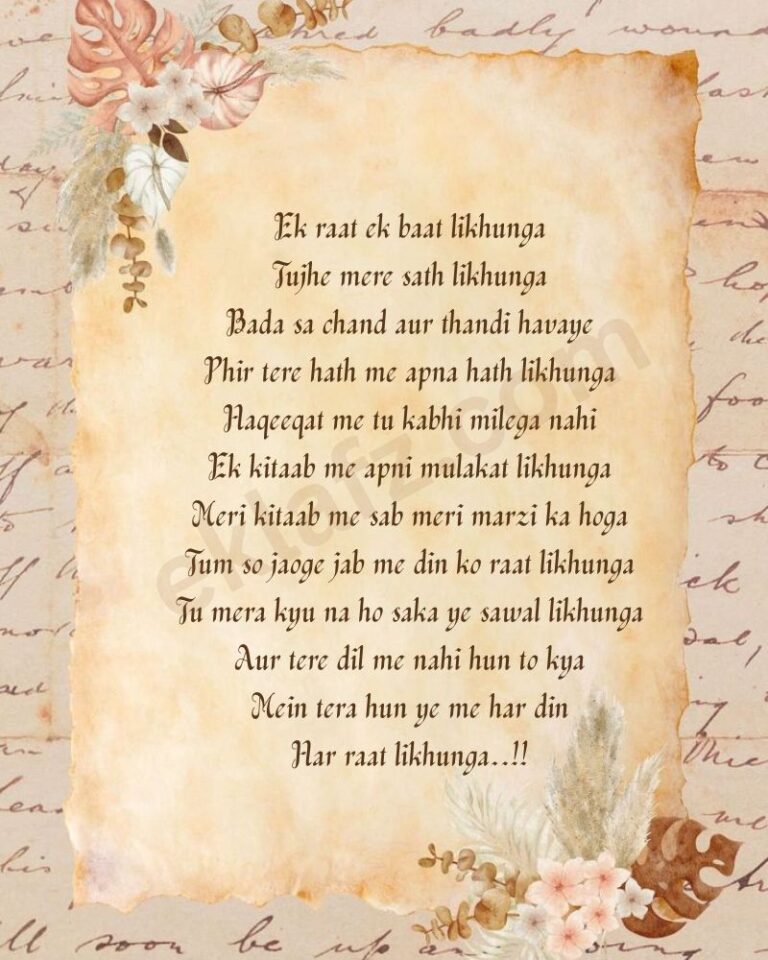 Ek raat ek baat likhunga
Tujhe mere sath likhunga
Bada sa chand aur thandi havaye
Phir tere hath me apna hath likhunga
Haqeeqat me tu kabhi milega nahi
Ek kitaab me apni mulakat likhunga
Meri kitaab me sab meri marzi ka hoga
Tum so jaoge jab me din ko raat likhunga
Tu mera kyu na ho saka ye sawal likhunga
Aur tere dil me nahi hun to kya
Mein tera hun ye me har din
Har raat likhunga..!!